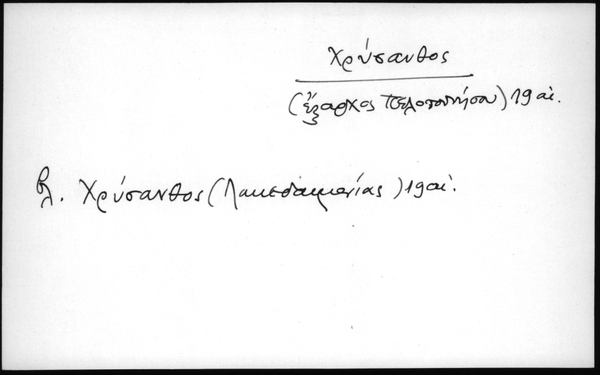 Χρύσανθος
(ἔξαρχος Πελοποννήσου) 19 αἰ.
βλ. Χρύσανθος (Λακεδαιμονίας) 19 αἰ.